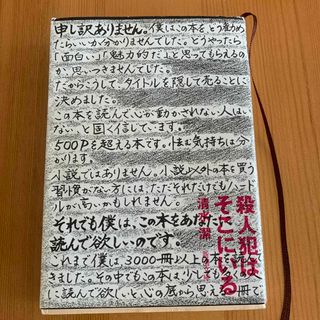 申し訳ありません。僕はこの本をどう勧め
たらいいか分かりませんでした。どうやったら
「面白い」「魅力的だ」と思ってもらえるの
か、思いつきませんでした。
だからこうして、タイトルを隠して売ることに
決めました。
この本を読んで心が動かされない人はい
ない、と固く信じています。
500Pを超える本です。怯む気持ちは分
かります。
小説ではありません。小説以外の本を買う
習慣がない方には、ただそれだけでもハードル
が高いかもしれません。
それでも僕は、この本をあなたに
読んで欲しいのです。
これまで僕は、3000冊以上本を読んで
きました。その中でもこの本は
に読んで欲しいと心の底から思える一冊で
殺人犯は
そこにいる
清水潔